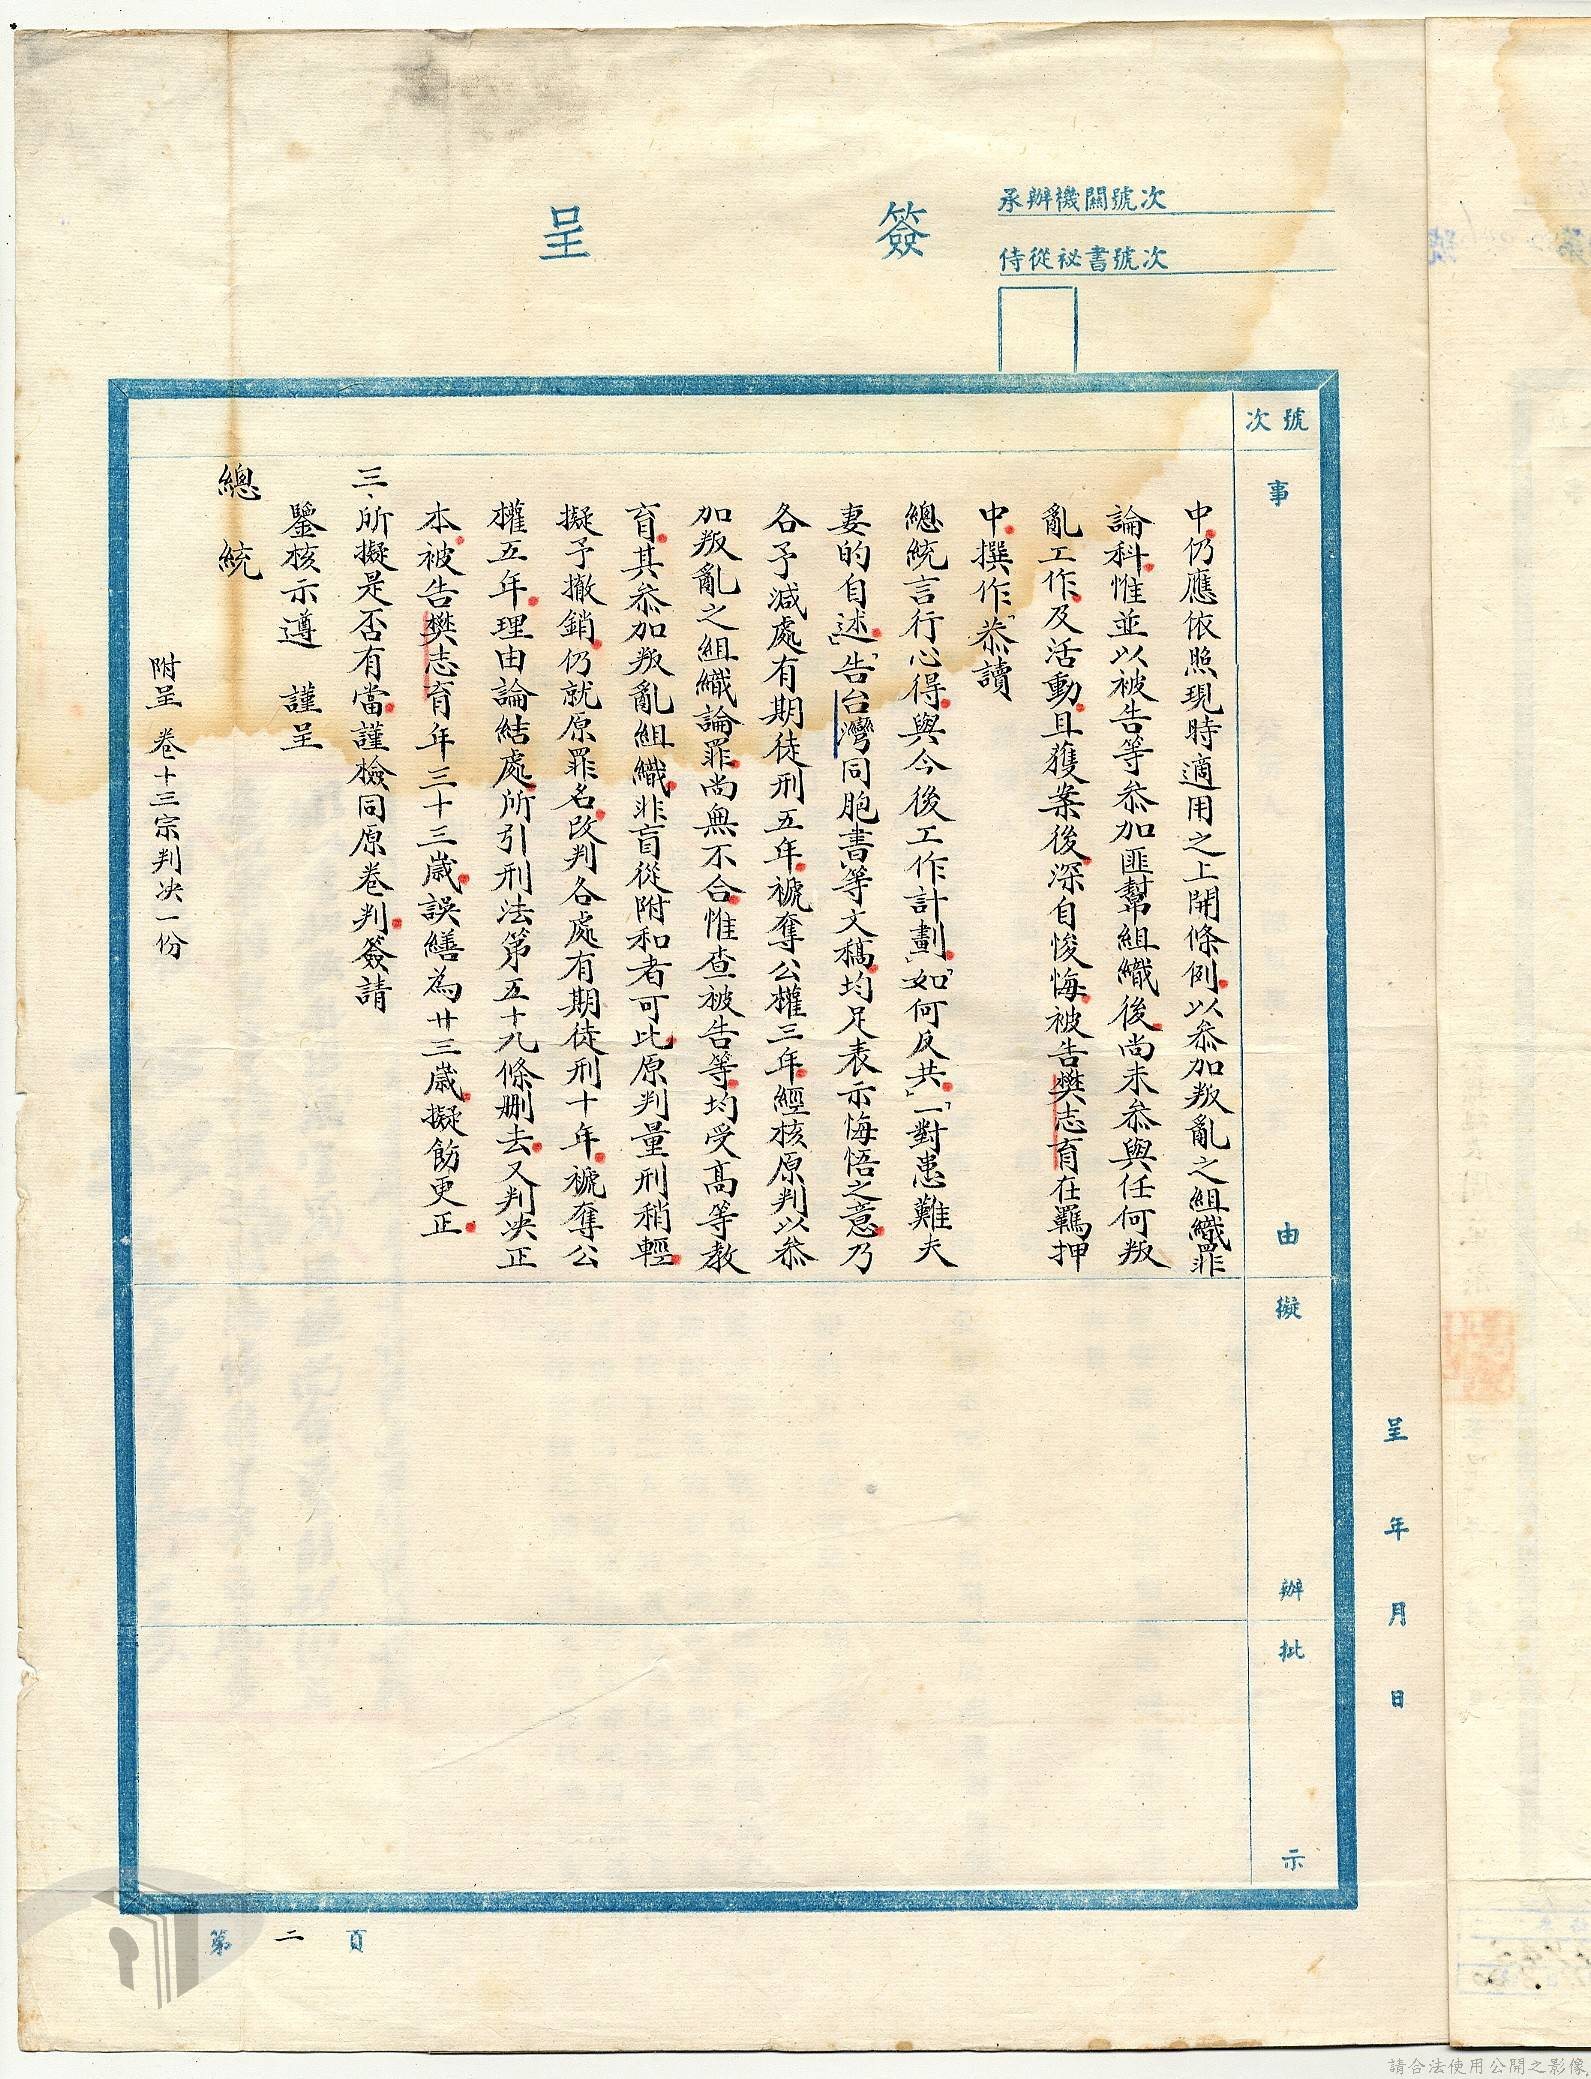 簽呈
承辦機關號次
侍從祕書號次
號次
事由
擬辦
批示
呈年月日
中仍應依照現時適用之上開條例以參加叛亂之組織罪
論科惟並以被告等參加匪幫組織後尚未參與任何叛
亂工作及活動且獲案後深自悛悔被告樊志育在羈押
中撰作「恭讀
總統言行心得與今後工作計劃」「如何反共」「一對患難夫
妻的自述」「告台灣同胞書」等文稿均足表示悔悟之意乃
各予減處有期徒刑五年褫奪公權三年經核原判以參
加叛亂之組織論罪尚無不合惟查被告等均受高等教
育其參加叛亂組織非盲從附和者可比原判量刑稍輕
擬予撤銷仍就原罪名改判各處有期徒刑十年褫奪公
權五年理由論結處所引刑法第五十九條刪去又判決正
本被告樊志育年三十三歲誤繕為廿三歲擬飭更正
三、所擬是否有當謹檢同原卷判簽請
鑒核示遵 謹呈
總統
附呈 卷十三宗判決一份
第二頁
請合法使用公開之影像